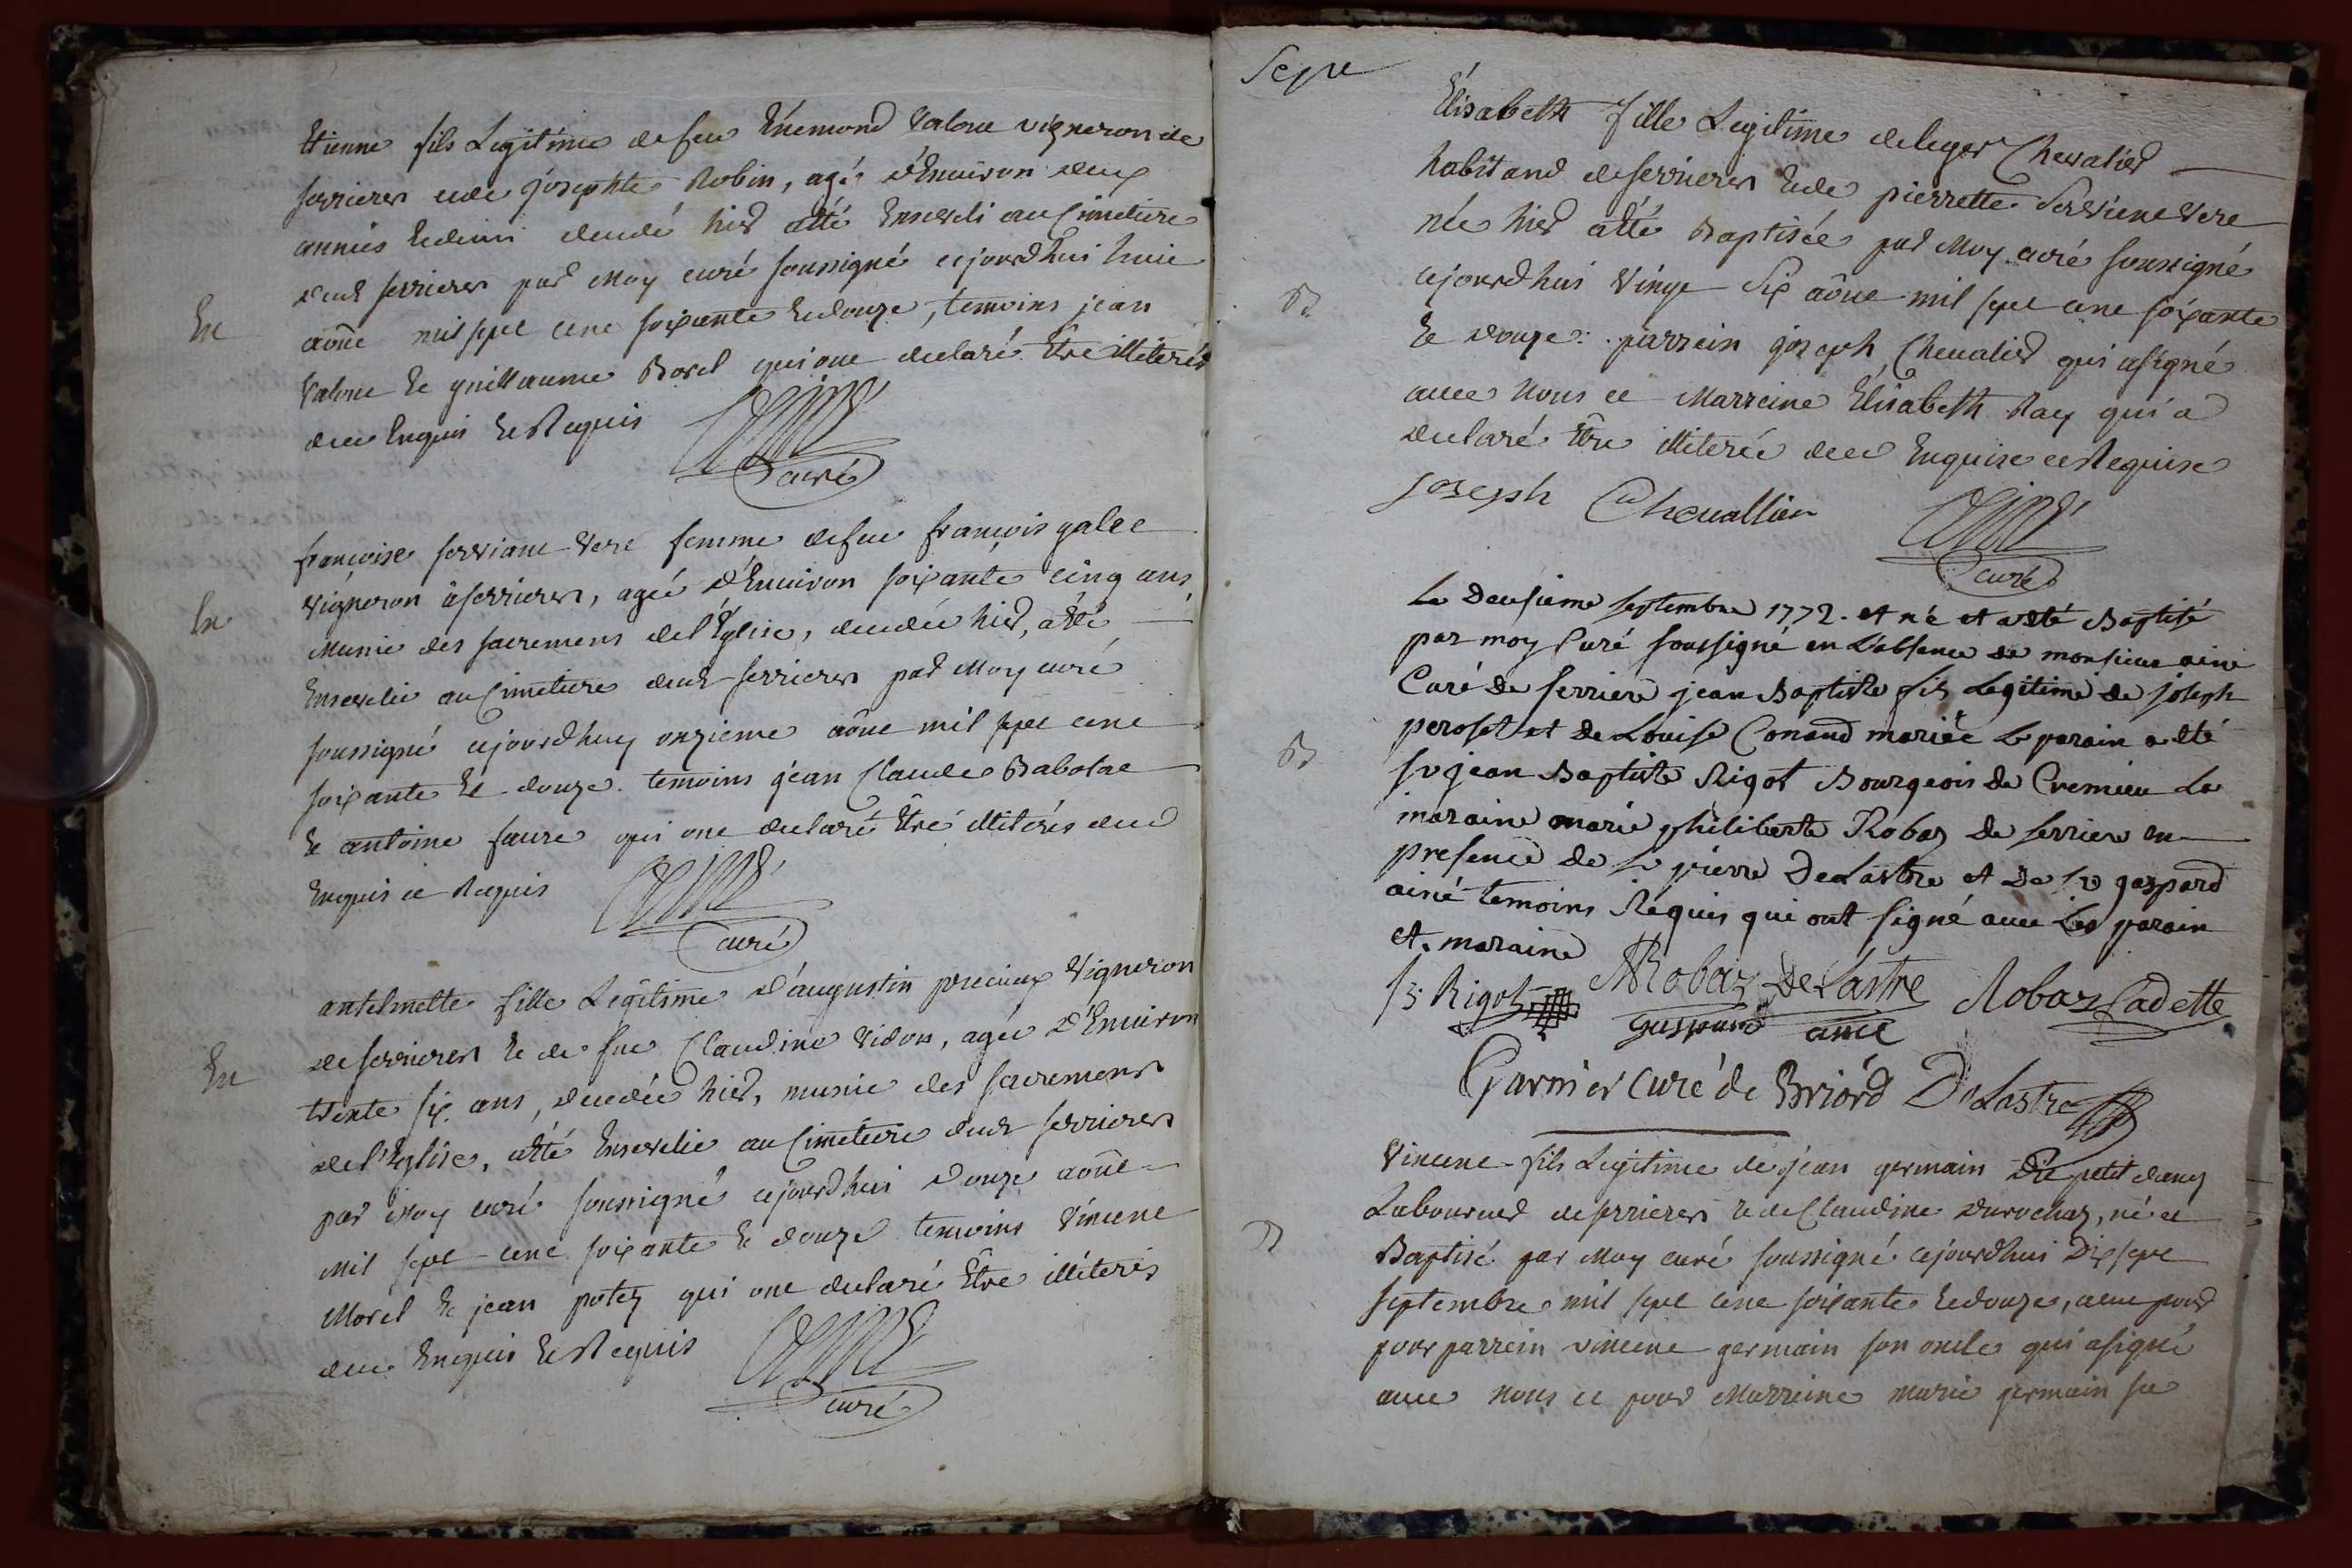 Etienne fils Legitime de feu Enemond Valone vigneron de
serrieres et de josephte Robin, agé d'Environ deux
années et demi decedé hier atté Enseveli au Cimetiere
dud serrieres par Moy curé soussigné cejourdhui huit
En
aôut mil sept cent soixante et douze, temoins jean
Valone et guillaume Borel qui ont declaré Être illiterés
de ce Enquis et Requis
curé
françoise serviant Vere femme de feu françois galee
vigneron à serrieres, agée d'Environ soixante cinq ans
En
Munie des sacremens de l'Église, decedée hier, atté
Ensevelie au Cimetiere dud serrieres par Moy curé
soussigné cejourdhuy onzieme aôut mil sept cent
soixante et douze. temoins jean Claude Babolat
et antoine faure qui ont declaré Être illiterés de ce
Enquis et Requis
curé
antelmette fille Legitime d'augustin precieux Vigneron
de serrieres et de feue Claudine Vidon, agée d'Environ
En
trente six ans, decedée hier, munie des sacremens
de l'Eglise, atté Ensevelie au Cimetiere dud serrieres
par Moy curé soussigné cejourdhui douze aôut
mil sept cent soixante et douze temoins Vincent
Morel et jean potez qui ont declaré Être illiterés
de ce Enquis et Requis
curé
Sept
Élisabeth fille Legitime de leger Chevalier
habitand de serrieres et de pierrette Serviene Vere
née hier atté Baptisée par Moy curé soussigné
cejourdhui Vingt Six aôut mil sept cent soixante
B
et douze. parrein joseph Chevalier qui a signé
avec Nous et Marreine Élisabeth Ray qui a
declaré Être illiterée de ce Enquise et Requise
Joseph Chevallier
curé
Le Deusieme septembre 1772. et né et a eté Baptisé
par moy Curé soussigné en L'absence de monsieur aimé
Curé de serriere jean Baptiste fils Legitime de joseph
peroset et de Louise Conand mariée Le parain a eté
B
sr jean Baptiste Rigot Bourgeois de Cremieu La
maraine marie philiberte Robaz de serriere en
presence de sr pierre DeLastre et de sr gaspard
aimé temoins Requis qui ont signé avec Les parain
et maraine
Rigot Robaz DeLastre Robaz Cadette
gaspard aimé
Garnier curé de Briord DeLastre
Vincent fils Legitime de jean germain Dit petit dany
Laboureur de serrieres et de Claudine durochaz, né et
B
Baptisé par Moy curé soussigné cejourdhui Dix sept
septembre mil sept cent soixante et douze, ayant pour
pour parrein vincent germain son oncle qui a signé
avec Nous et pour Marreine marie germain sa